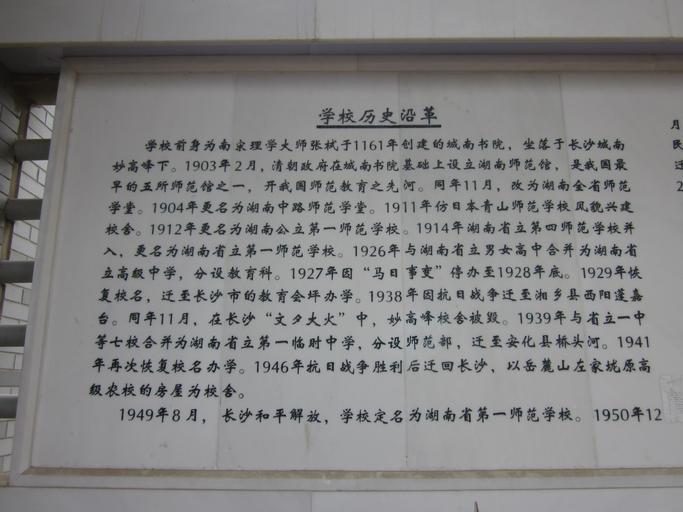 学校历史沿革
学校前身为南宋理学大师张栻于1161年创建的城南书院，坐落于长沙城南
妙高峰下。1903年2月，清朝政府在城南书院基础上设立湖南师范馆，是我国最
早的五所师范馆之一，开我国师范教育之先河。同年11月，改为湖南全省师范
学堂。1904年更名为湖南中路师范学堂。1911年仿日本青山师范学校风貌兴建
校舍。1912年更名为湖南公立第一师范学校。1914年湖南省立第四师范学校并
入，更名为湖南省立第一师范学校。1926年与湖南省立男女高中合并为湖南省
立高级中学，分设教育科。1927年因“马日事变”停办至1928年底。1929年恢
复校名，迁至长沙市的教育会坪办学。1938年因抗日战争迁至湘乡县西阳蓬嘉
台。同年11月，在长沙“文夕大火”中，妙高峰校舍被毁。1939年与省立一中
等七校合并为湖南省立第一临时中学，分设师范部，迁至安化县桥头河。1941
年再次恢复校名办学。1946年抗日战争胜利后迁回长沙，以岳麓山左家垅原高
级农校的房屋为校舍。
1949年8月，长沙和平解放，学校定名为湖南省第一师范学校。1950年12
月
民
迁
2